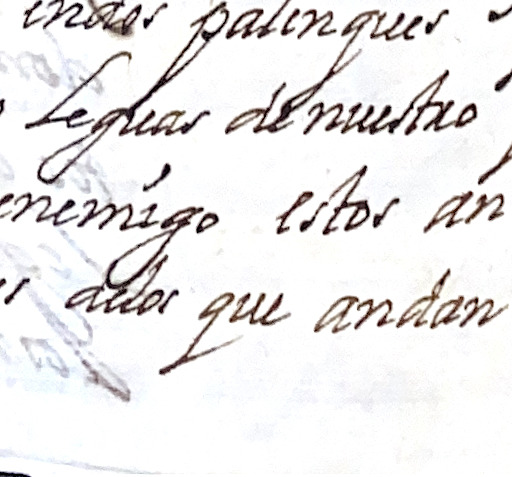 indios palenques
leguas de nuestro
enemigo estos an
delos que andan